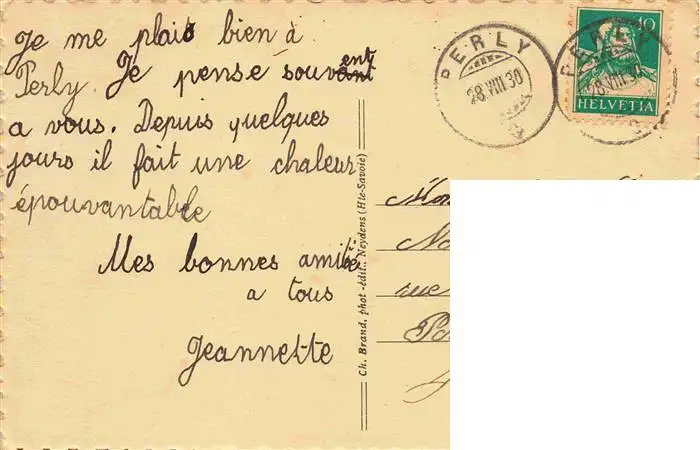 Je me plais bien à
Perly. Je pense souvent
a vous. Depuis quelques
jours il fait une chaleur
épouvantable
Mes bonnes amitié
a tous
Jeannette
Ch. Brand, phot-édit. Neydens (Hte-Savoie)
PERLY
28.VIII.30
PERLY
28.VIII.30
10
HELVETIA
rue